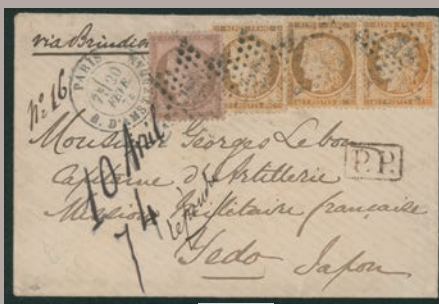 via Brindisi
PARIS
7E/20
FEVR.
R. D'AMSTERDAM
No 16
Monsieur Georges Lebon
Capitaine d'Artillerie
Mission Militaire française
Yedo
Japon
P.P.
10 Avril
74
répondu